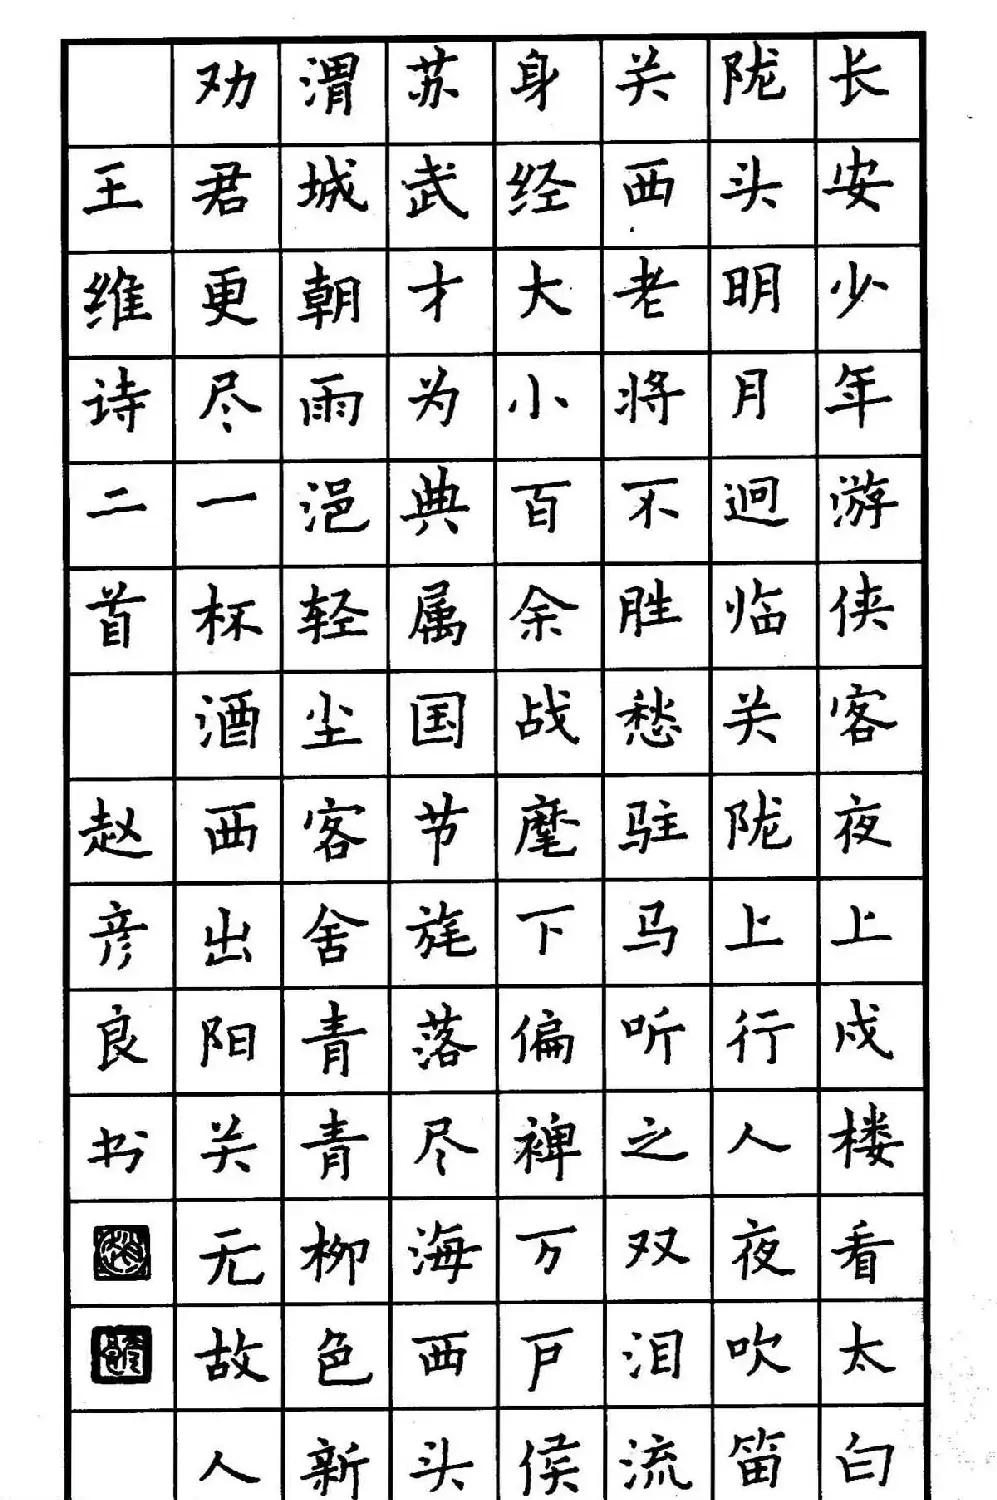 长安少年游侠客夜上戍楼看太白
陇头明月迥临关陇上行人夜吹笛
关西老将不胜愁驻马听之双泪流
身经大小百余战麾下偏裨万户侯
苏武才为典属国节旄落尽海西头
渭城朝雨浥轻尘客舍青青柳色新
劝君更尽一杯酒西出阳关无故人
王维诗二首 赵彦良书